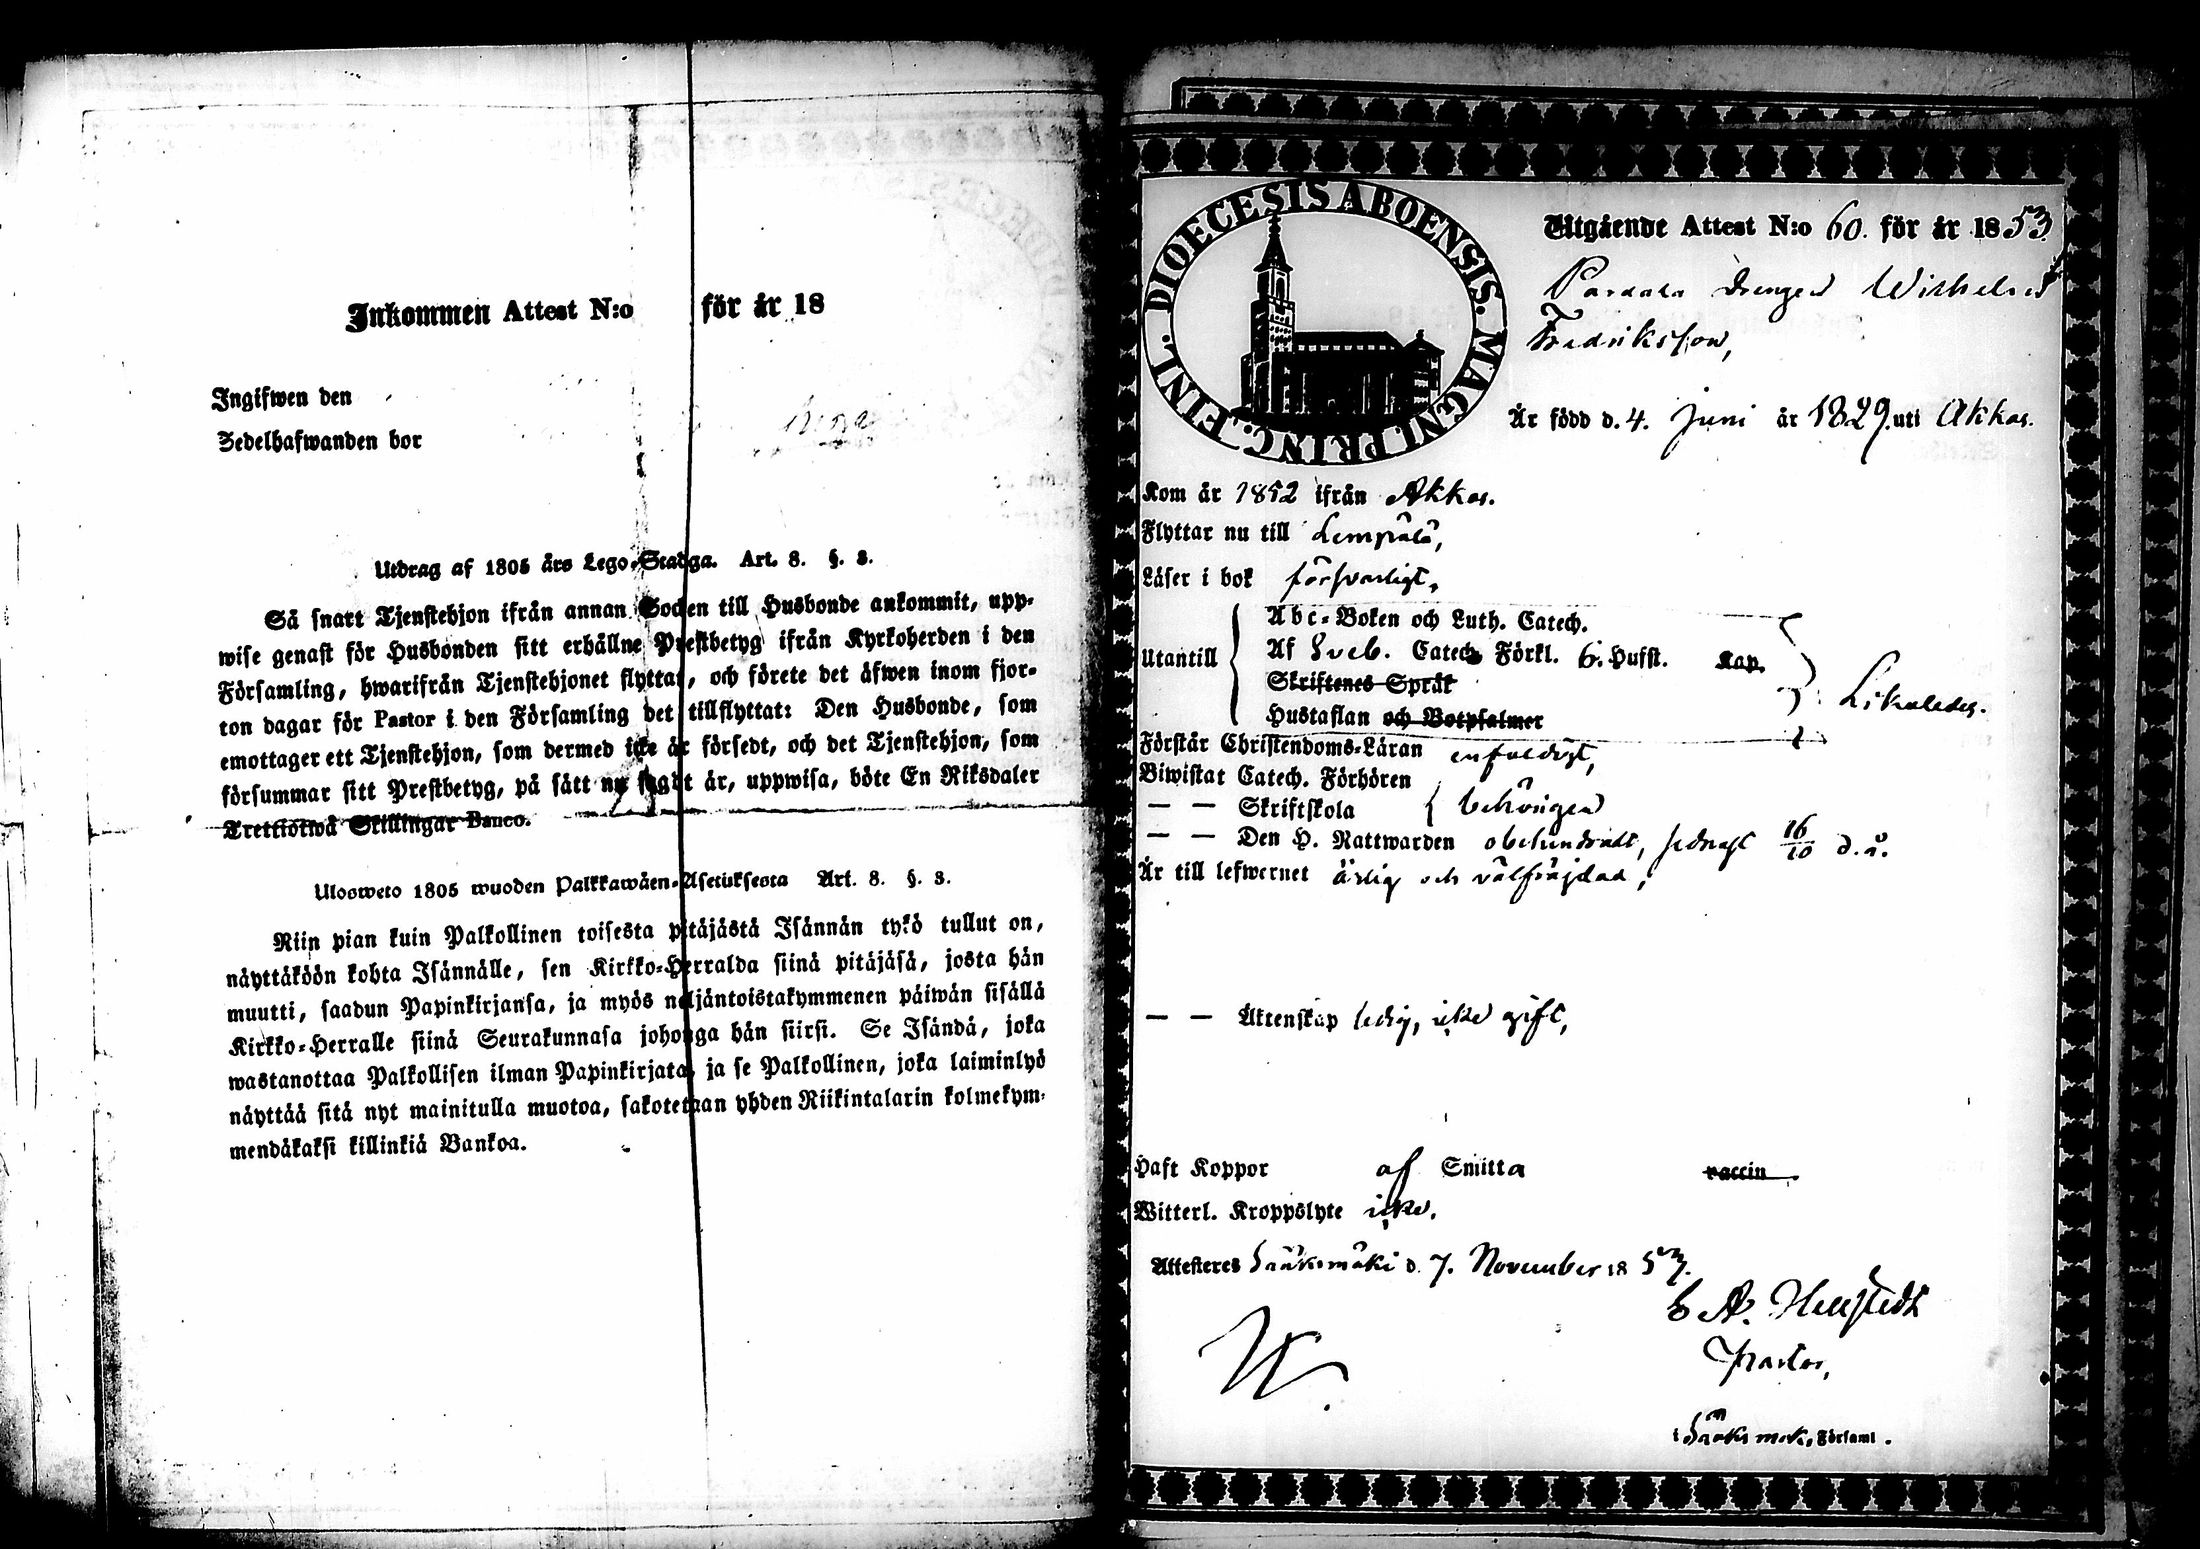 Inkommen Attest N:o för år 18
Ingifwen den
Zedelhafwanden bor
Utdrag af 1805 års Lego-Stadga. Art. 8. §. 3.
Så snart Tjenstehjon ifrån annan Socken till Husbonde ankommit, upp-
wise genast för Husbonden sitt erhållne Prestbetyg ifrån Kyrkoherden i den
Församling, hwarifrån Tjenstehjonet flyttat, och förete det äfwen inom fjor-
ton dagar för Pastor i den Församling det tillflyttat: Den Husbonde, som
emottager ett Tjenstehjon, som dermed icke är försedt, och det Tjenstehjon, som
försummar sitt Prestbetyg, på sätt nu sagdt är, uppwisa, böte En Riksdaler
Trettiotwå Skillingar Banco.
Ulosweto 1805 wuoden Palkkawäen-Asetuksesta Art. 8. §. 3.
Niin pian kuin Palkollinen toisesta pitäjästä Isännän tykö tullut on,
näyttäköön kohta Isännälle, sen Kirkko-Herralda siinä pitäjäsä, josta hän
muutti, saadun Papinkirjansa, ja myös neljäntoistakymmenen päiwän sisällä
Kirkko-Herralle siinä Seurakunnasa johonga hän siirsi. Se Isändä, joka
wastanottaa Palkollisen ilman Papinkirjata, ja se Palkollinen, joka laiminlyö
näyttää sitä nyt mainitulla muotoa, sakotetaan yhden Riikintalarin kolmekym-
mendäkaksi killinkiä Bankoa.
DIOECESIS ABOENSIS. MAGNI PRINC. FINL.
Utgående Attest N:o 60. för år 1853.
drengen Wilhelm
Fredriksson,
Är född d. 4. Juni år 1829. uti Akkas.
Kom år 1852 ifrån Akkas.
Flyttar nu till Lempälä,
Läser i bok försvarligt,
Utantill
Abc-Boken och Luth. Catech.
Af Sveb. Catech Förkl. 6. Hufst. Kap.
Skriftenes Språk
Hustaflan och Botpsalmer
Likaledes.
Förstår Christendoms-Läran enfaldigt,
Biwistat Catech. Förhören
— — Skriftskola behörigen
— — Den H. Nattwarden obehindradt, sednast 16/10 d.å.
Är till lefwernet ärlig och välfräjdad,
— — Äktenskap ledig, icke gift,
Haft Koppor af Smitta vaccin.
Witterl. Kroppslyte icke.
Attesteres Sääksmäki d. 7. November 1853.
Pastor,
i Sääksmäki Församl.